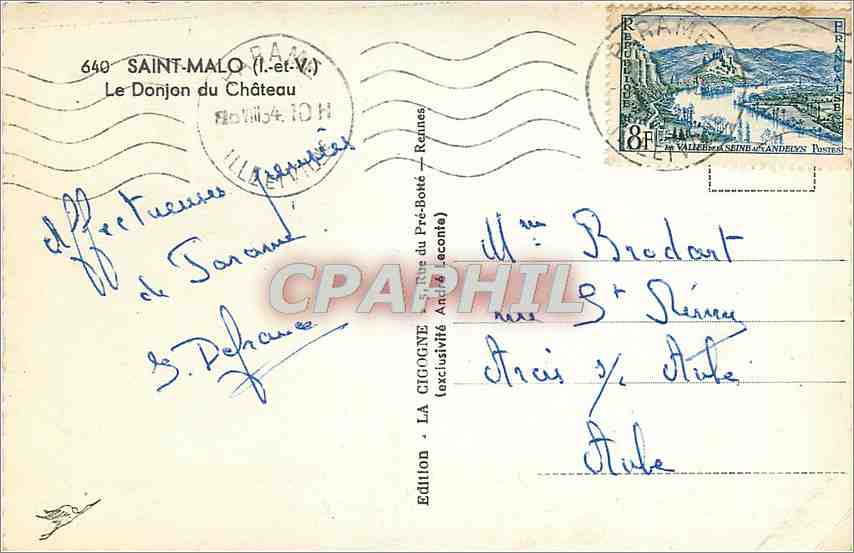 640 SAINT-MALO (I.-et-V.)
Le Donjon du Château
PARAMÉ
54 10 H
ILLE ET VILAINE
REPUBLIQUE
FRANCAISE
8F
LA VALLEE DE LA SEINE AUX ANDELYS POSTES
PARAME
ILLE ET
Affectueuses pensées
de Paramé.
S. Defrance
Edition - LA CIGOGNE - 5, Rue du Pré-Botté - Rennes
(exclusivité André Leconte)
CPAPHIL
Mme Brodart
rue St Rémy
Arcis s/ Aube
Aube